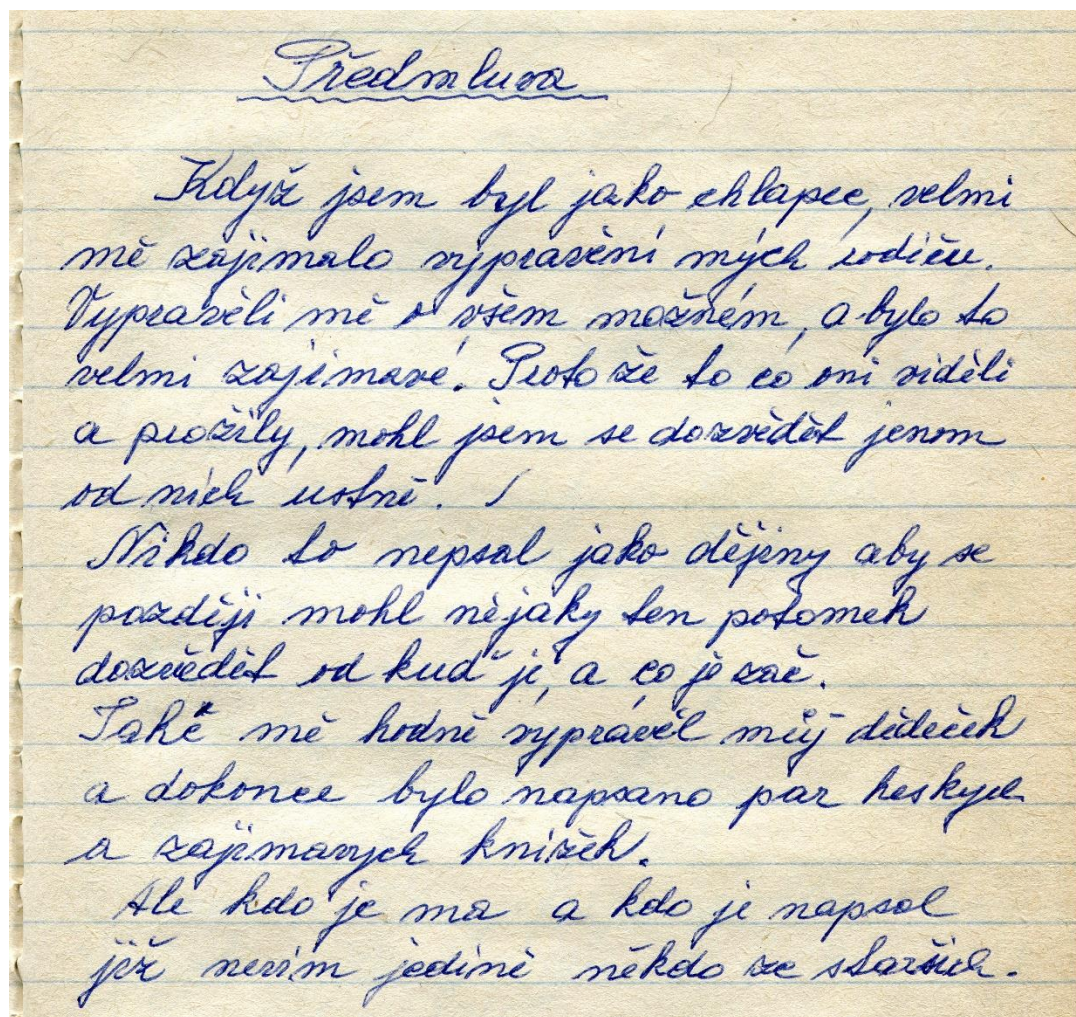 Předmluva
Když jsem byl jako chlapec, velmi
mě zajimalo vypravění mých rodiču.
Vypravěli mě o všem možném, a bylo to
velmi zajimavé. Proto že to co oni viděli
a prožily, mohl jsem se dozvědět jenom
od nich ustně.
Nikdo to nepsal jako dějiny aby se
později mohl nějaky ten potomek
dozvědět od kuď je, a co je zač.
Také mě hodně vyprávěl můj dědeček
a dokonce bylo napsano par heskych
a zajimavych knížek.
Ale kdo je ma a kdo je napsal
již nevim jedině někdo ze staršich.